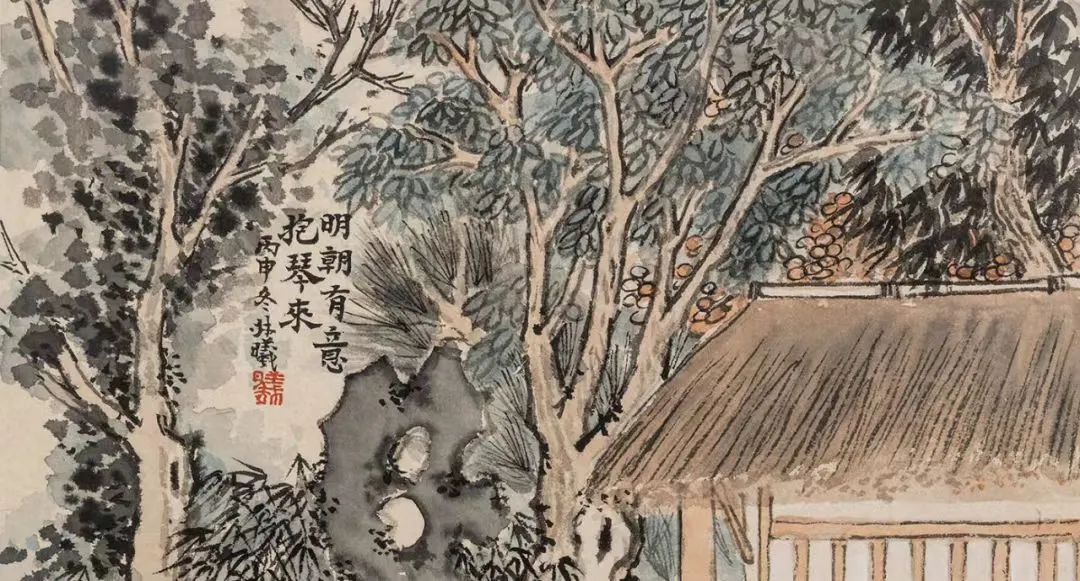 明朝有意
抱琴來
丙申冬林曦